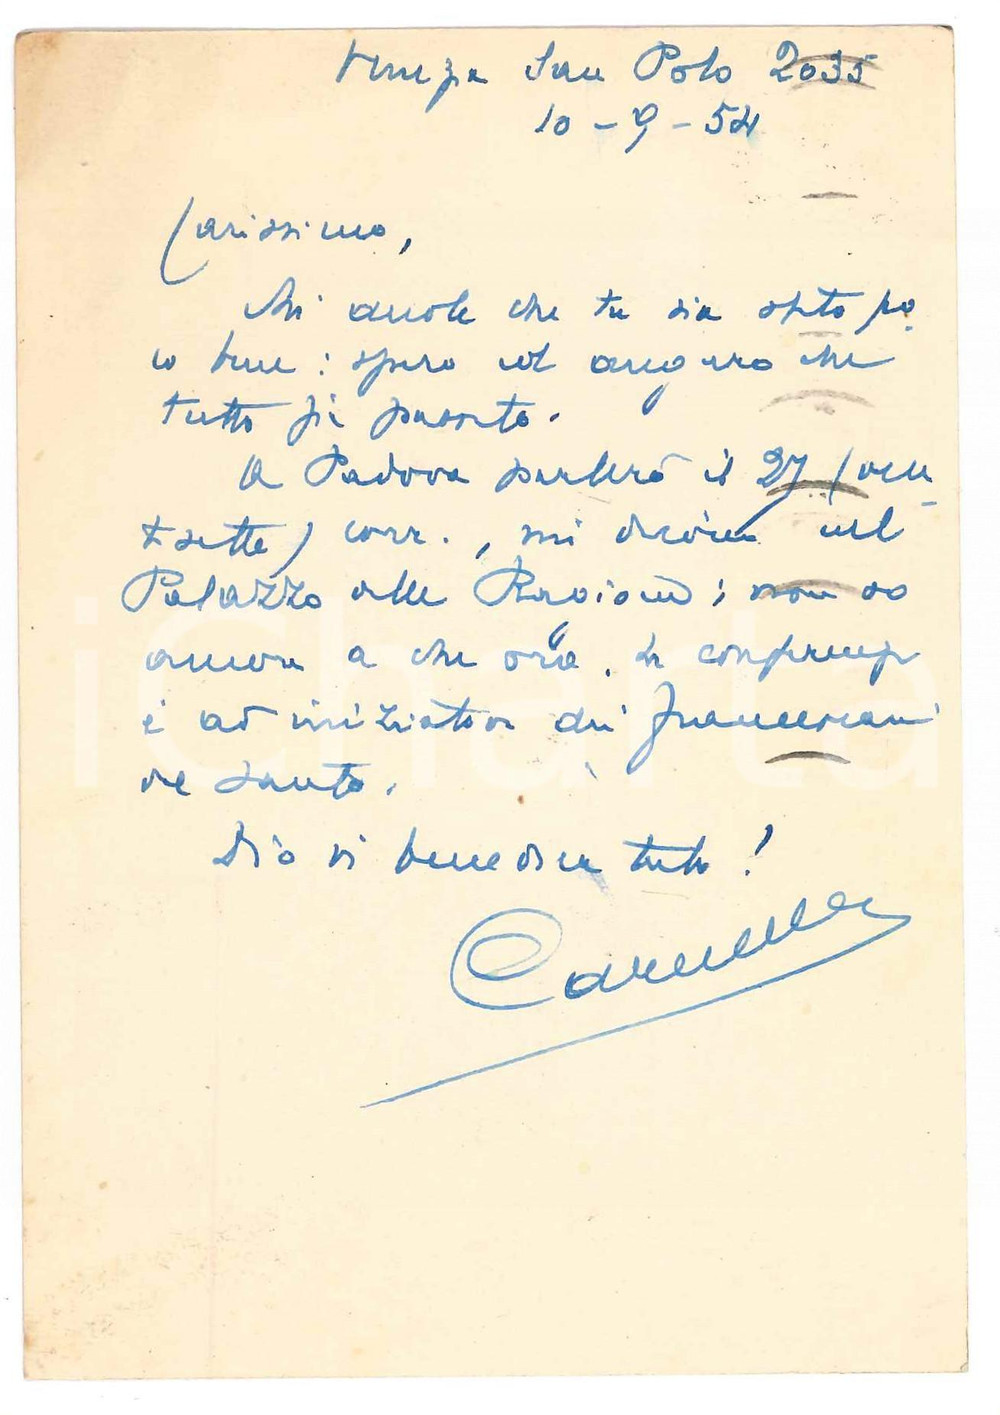 Venezia San Polo 2035
10-9-54
Carissimo,
Mi duole che tu sia stato po-
co bene: spero ed auguro che
tutto sia passato.
A Padova parlerò il 27 (ven-
tisette) corr., mi dicono nel
Palazzo della Ragione; non so
ancora a che ora. La conferenza
è ad iniziativa dei francescani
del Santo.
Dio vi benedica tutti!
iCharta